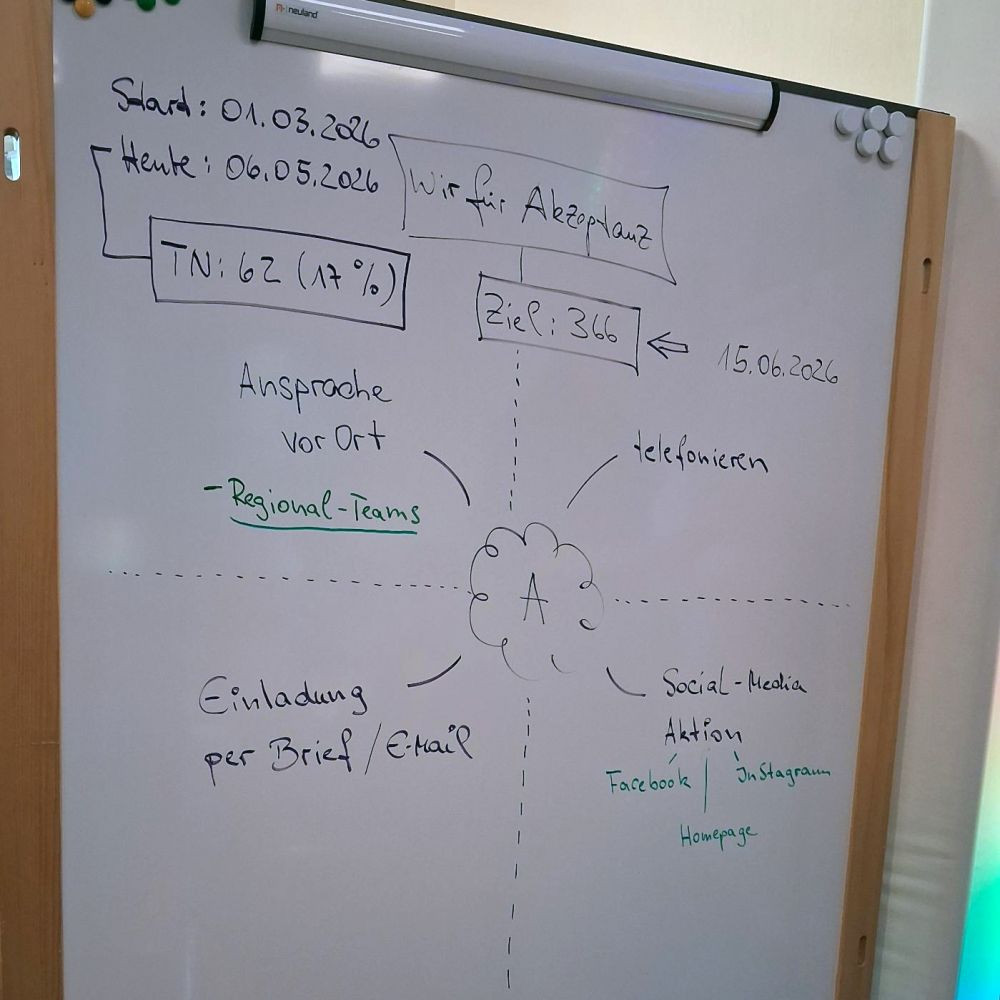 neuland
Start: 01.03.2026
Heute: 06.05.2026
Wir für Akzeptanz
TN: 62 (17%)
Ziel: 366
15.06.2026
Ansprache
vor Ort
- Regional-Teams
telefonieren
A
Einladung
per Brief / E-Mail
Social-Media
Aktion
Facebook
Instagram
Homepage